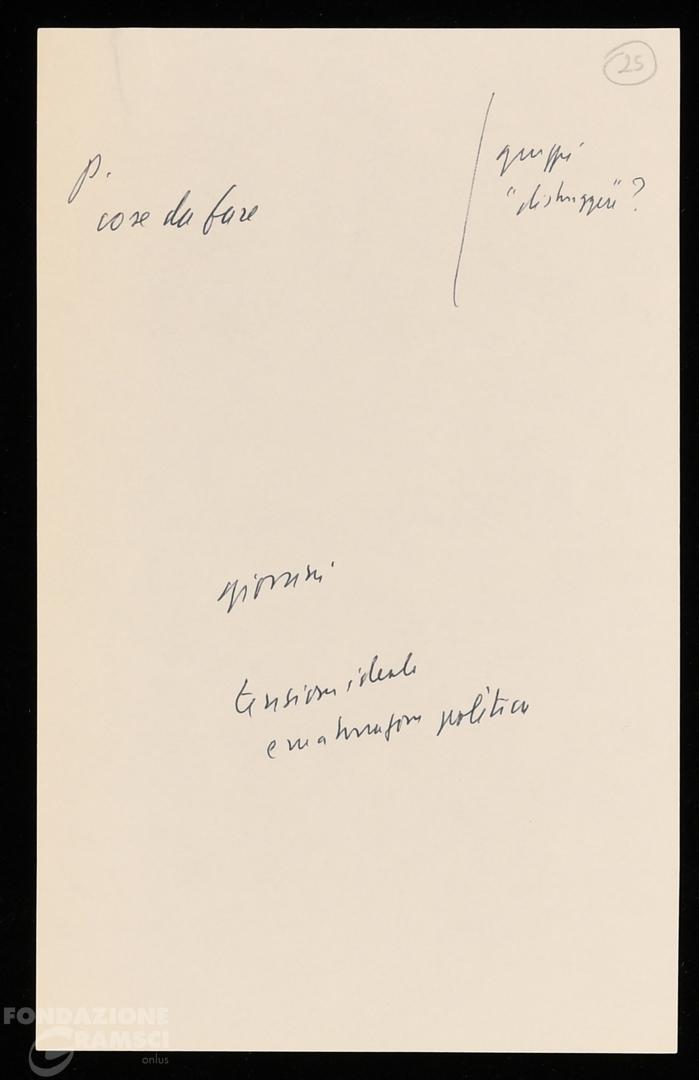 25
P.
cose da fare
gruppi
"distruggere"?
giovani
tensione ideale
e maturazione politica
FONDAZIONE
GRAMSCI
onlus